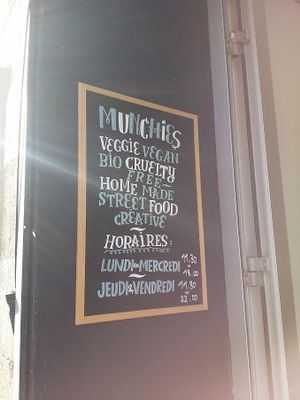 MUNCHIES
VEGGIE VEGAN
BIO CRUELTY
FREE
HOME MADE
STREET FOOD
CREATIVE
HORAIRES:
LUNDI MERCREDI 11.30
18.00
JEUDI & VENDREDI 11.30
22.00